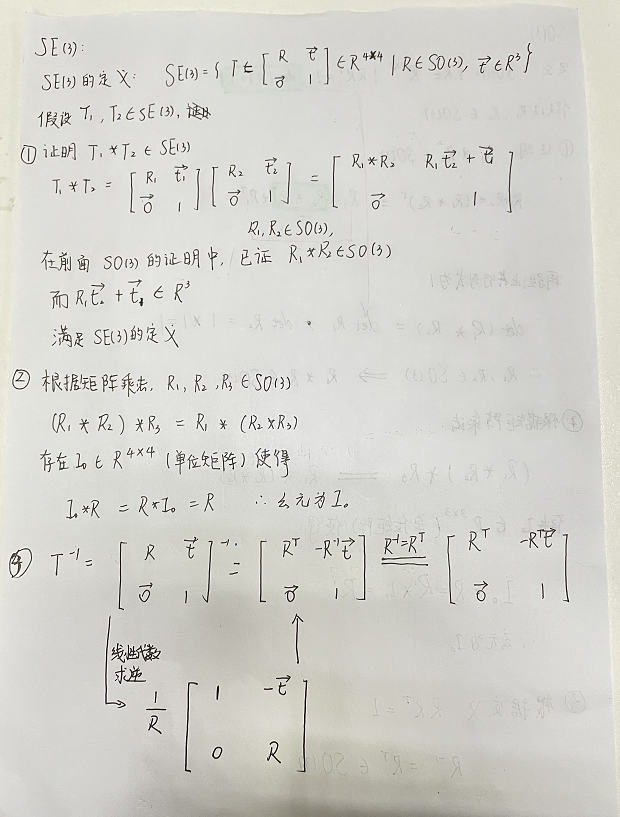 SE(3):
SE(3)的定义: SE(3)={ T = [ R t⃗ ; 0⃗ 1 ] ∈ R^{4×4} | R∈SO(3), t⃗∈R³ }
假设 T₁, T₂∈SE(3),
① 证明 T₁*T₂ ∈ SE(3)
T₁*T₂ = [ R₁ t⃗₁ ; 0⃗ 1 ] [ R₂ t⃗₂ ; 0⃗ 1 ] = [ R₁*R₂ R₁t⃗₂ + t⃗₁ ; 0⃗ 1 ]
R₁, R₂∈SO(3),
在前面 SO(3) 的证明中, 已证 R₁*R₂∈SO(3)
而 R₁t⃗₂ + t⃗₁ ∈ R³
满足 SE(3)的定义
② 根据矩阵乘法, R₁, R₂, R₃ ∈ SO(3)
(R₁ * R₂) * R₃ = R₁ * (R₂*R₃)
存在 I₀ ∈ R^{4×4} (单位矩阵) 使得
I₀*R = R*I₀ = R ∴ 幺元为 I₀
④ T⁻¹ = [ R t⃗ ; 0⃗ 1 ]⁻¹ = [ Rᵀ -R⁻¹t⃗ ; 0⃗ 1 ] R⁻¹=Rᵀ [ Rᵀ -Rᵀt⃗ ; 0⃗ 1 ]
线性代数
求逆
1/R [ 1 -t⃗ ; 0 R ]